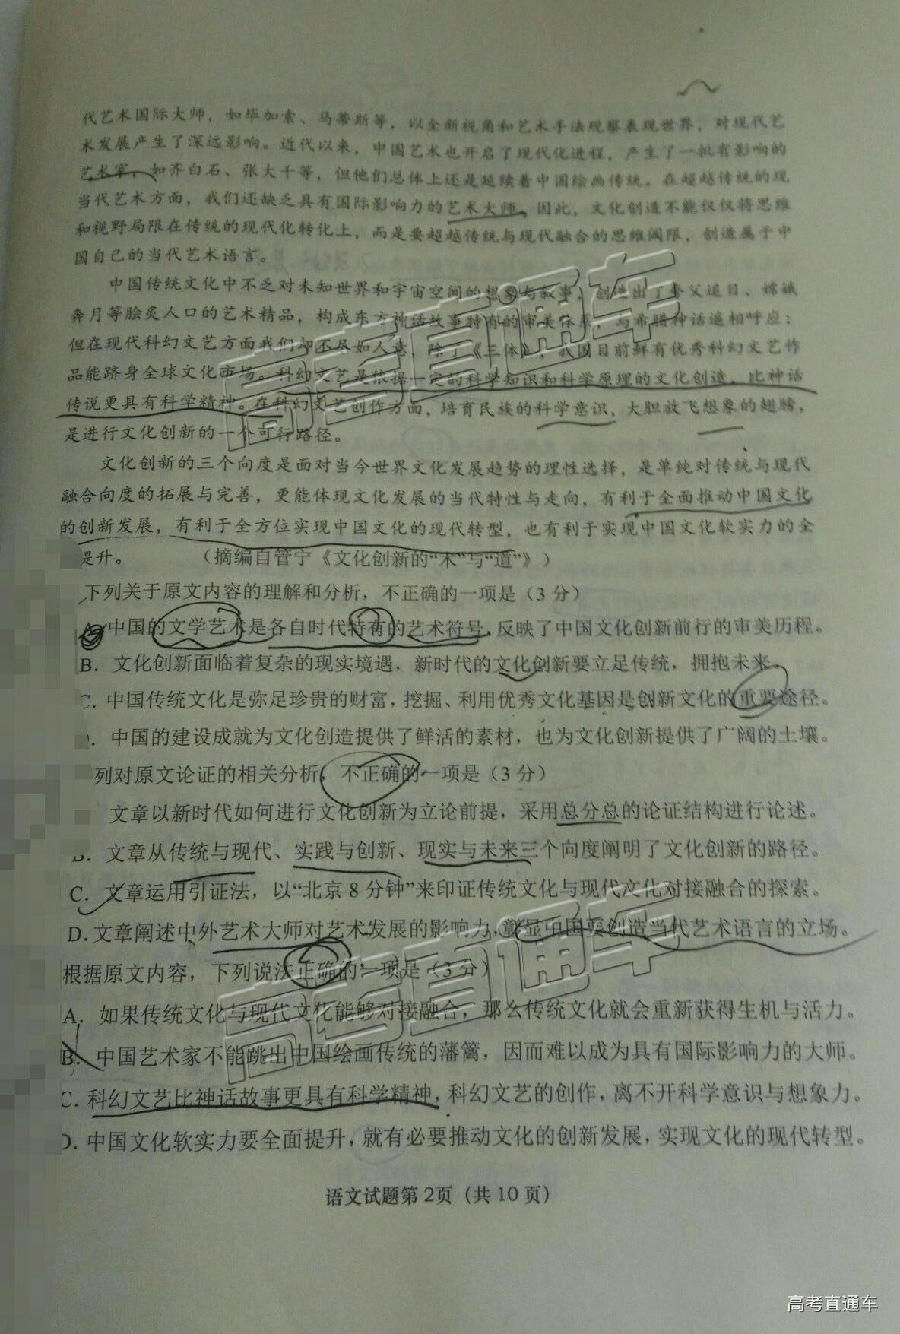 代艺术国际大师，如毕加索、马蒂斯等，以全新视角和艺术手法观察表现世界，对现代艺
术发展产生了深远影响。近代以来，中国艺术也开启了现代化进程，产生了一批有影响的
艺术家，如齐白石、张大千等，但他们总体上还是延续着中国绘画传统。在超越传统的现
当代艺术方面，我们还缺乏具有国际影响力的艺术大师。因此，文化创造不能仅仅将思维
和视野局限在传统的现代化转化上，而是要超越传统与现代融合的思维阈限，创造属于中
国自己的当代艺术语言。
中国传统文化中不乏对未知世界和宇宙空间的想象与叙事，创造出了夸父逐日、嫦娥
奔月等脍炙人口的艺术精品，构成东方神话故事特有的审美体系，与希腊神话遥相呼应；
但在现代科幻文艺方面我们却不尽如人意，除了《三体》，我国目前鲜有优秀科幻文艺作
品能跻身全球文化市场。科幻文艺是依据一定的科学知识和科学原理的文化创造，比神话
传说更具有科学精神。在科幻文艺创作方面，培育民族的科学意识、大胆放飞想象的翅膀，
是进行文化创新的一个可行路径。
文化创新的三个向度是面对当今世界文化发展趋势的理性选择，是单纯对传统与现代
融合向度的拓展与完善，更能体现文化发展的当代特性与走向，有利于全面推动中国文化
的创新发展，有利于全方位实现中国文化的现代转型，也有利于实现中国文化软实力的全
提升。 （摘编自管宁《文化创新的“术”与“道”》）
下列关于原文内容的理解和分析，不正确的一项是（3 分）
中国的文学艺术是各自时代特有的艺术符号，反映了中国文化创新前行的审美历程。
B．文化创新面临着复杂的现实境遇，新时代的文化创新要立足传统，拥抱未来。
C．中国传统文化是弥足珍贵的财富，挖掘、利用优秀文化基因是创新文化的重要途径。
中国的建设成就为文化创造提供了鲜活的素材，也为文化创新提供了广阔的土壤。
列对原文论证的相关分析，不正确的一项是（3 分）
文章以新时代如何进行文化创新为立论前提，采用总分总的论证结构进行论述。
B．文章从传统与现代、实践与创新、现实与未来三个向度阐明了文化创新的路径。
C．文章运用引证法，以“北京 8 分钟”来印证传统文化与现代文化对接融合的探索。
D. 文章阐述中外艺术大师对艺术发展的影响力，彰显中国要创造当代艺术语言的立场。
根据原文内容，下列说法正确的一项是（3 分）
A．如果传统文化与现代文化能够对接融合，那么传统文化就会重新获得生机与活力。
B．中国艺术家不能跳出中国绘画传统的藩篱，因而难以成为具有国际影响力的大师。
C. 科幻文艺比神话故事更具有科学精神，科幻文艺的创作，离不开科学意识与想象力。
D. 中国文化软实力要全面提升，就有必要推动文化的创新发展，实现文化的现代转型。
语文试题第 2页（共 10 页）
高考直通车
高考直通车
高考直通车